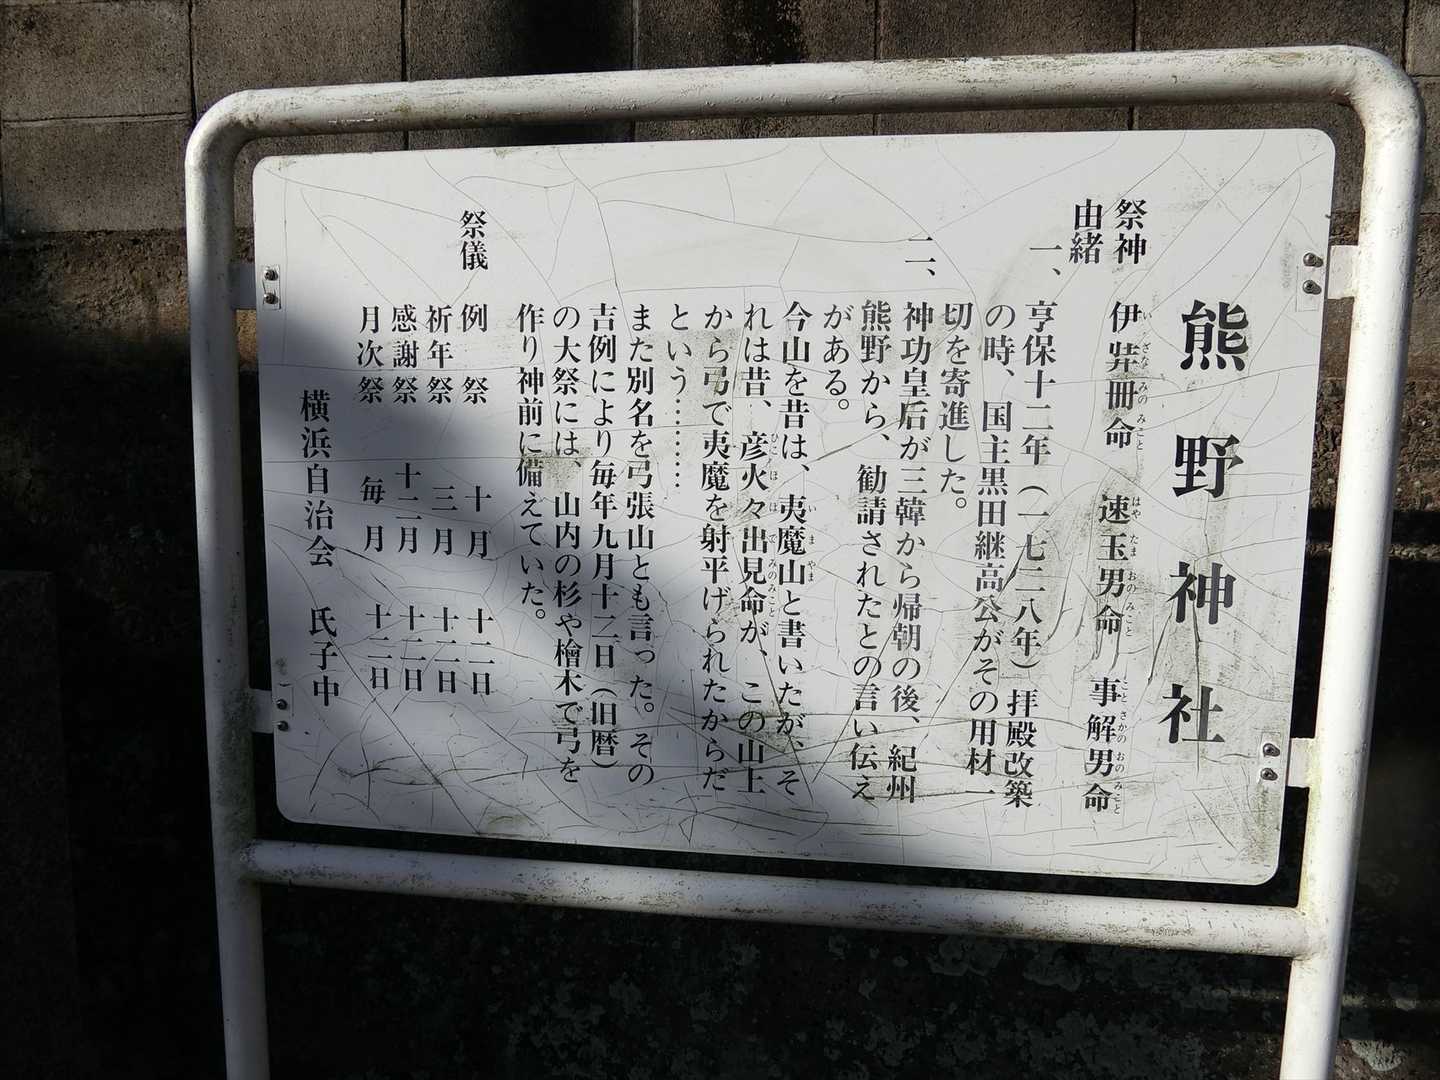 熊野神社
祭神 伊弉冊命 速玉男命 事解男命
い ざな みの みこと はや たま おの みこと こと さかの おの みこと
由緒
一、亨保十二年(一七二八年)拝殿改築
の時、国主黒田継高公がその用材一
切を寄進した。
二、神功皇后が三韓から帰朝の後、紀州
熊野から、勧請されたとの言い伝え
がある。
今山を昔は、夷魔山と書いたが、そ
い ま やま
れは昔、彦火々出見命が、この山上
ひこ ほ ほ で みのみこと
から弓で夷魔を射平げられたからだ
という………
また別名を弓張山とも言った。その
吉例により毎年九月十二日(旧暦)
の大祭には、山内の杉や檜木で弓を
作り神前に備えていた。
祭儀 例祭 十月 十二日
祈年祭 三月 十二日
感謝祭 十二月 十二日
月次祭 毎月 十二日
横浜自治会 氏子中